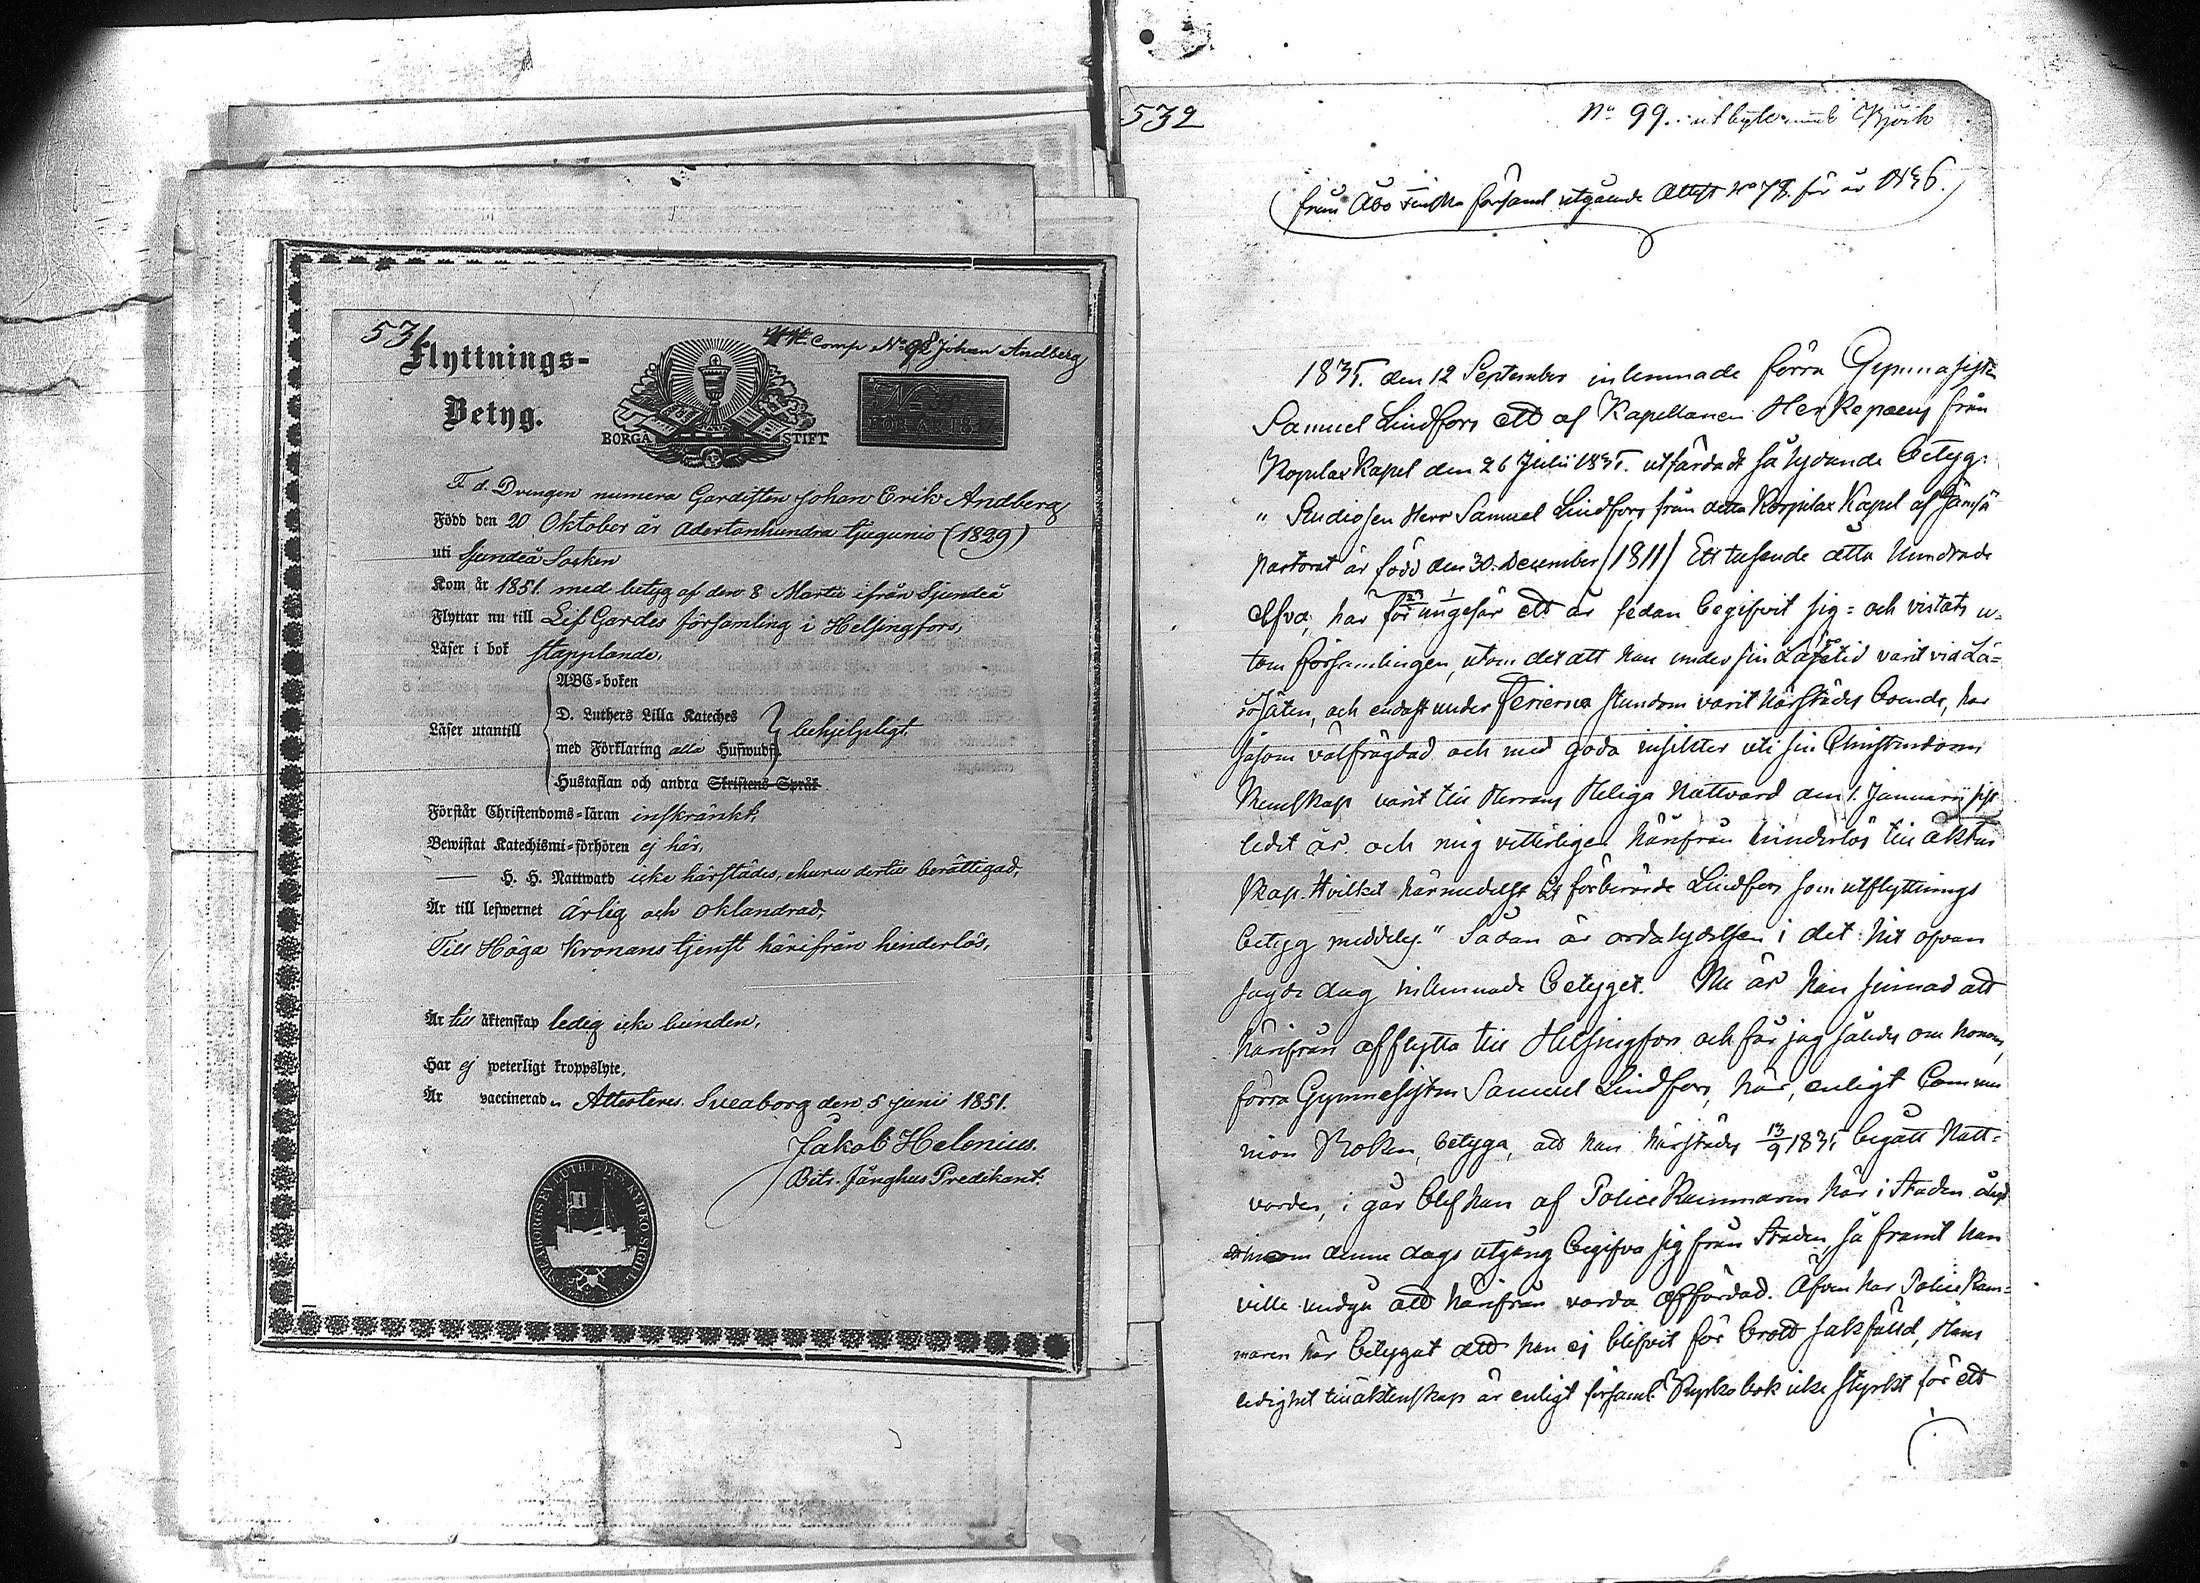 531
Comp No 98 Johan Andberg
Flyttnings-
Betyg.
BORGÅ STIFT
No
FÖR ÅR 18
F. d. Drengen numera Gardisten Johan Erik Andberg
Född den 20 Oktober år Adertonhundra tjugunio (1829)
uti Sjundeå Socken
Kom år 1851 med betyg af den 8 Martii ifrån Sjundeå
Flyttar nu till Lif Gardes församling i Helsingfors,
Läser i bok stapplande,
ABC-boken
D. Luthers Lilla Kateches
Läser utantill
behjelpligt
med Förklaring alla Hufwudst.
Hustaflan och andra Skriftens Språk
Förstår Christendoms-läran inskränkt,
Bewistat Katechismi-förhören ej här,
H. H. Nattward icke härstädes, ehuru dertill berättigad,
Är till lefwernet ärlig och oklandrad,
Till Höga Kronans tjenst härifrån hinderlös,
Är till äktenskap ledig icke bunden,
Har ej weterligt kroppslyte,
Är vaccinerad, Attesteras. Sveaborg den 5 Junii 1851.
Jakob Helenius.
Bitr. Fånghus Predikant.
532
No 99. utbytesmed Björk
(från Åbo Finska församl utgående Attest No 78 för år 1836.)
1835. den 12 September inlemnade förra Gymnasisten
Samuel Lindfors ett af Kapellanen Herkepaeus från
Korpilax Kapel den 26 Julii 1835. utfärdadt så lydande betyg:
" Studiosen Herr Samuel Lindfors från detta Korpilax Kapel af Jämsä
pastorat är född den 30. December /1811/ Ett tusende åtta hundrade
Elfva, har för ungefär ett år sedan begifvit sig = och vistats u-
tom församlingen, utom det att han under sin Läsetid varit vid Lä=
rosäten, och endast under Ferierna stundom varit härstädes boende, har
såsom välfrägdad och med goda insikter uti sin Christendoms
kunskap varit till Herrans Heliga Nattvard den 1. Januarii sist
ledit år och mig vetterligen härifrån hinderlös till äkten
skap. Hvilket härmedelst åt förberörde Lindfors som utflyttnings
betyg meddelas." Sådan är ordalydelsen i det hit ofvan
sagde dag inlemnade betyget. Nu är han sinnad att
härifrån afflytta till Helsingfors och får jag således om honom,
förra Gymnasisten Samuel Lindfors, här, enligt Commu
nion Boken, betyga, att han härstädes 13/9 1835 begått Natt=
varden, i går blef han af Police Kammaren här i Staden ålagd
att inom denne dags utgång begifva sig från Staden, så framt han
ville undgå att härifrån varda afförd. Äfven har Police Kam=
maren här betygat att han ej blifvit för brott sakfälld, Hans
ledighet till äktenskap är enligt församl. Kyrkobok icke styrkt för ett